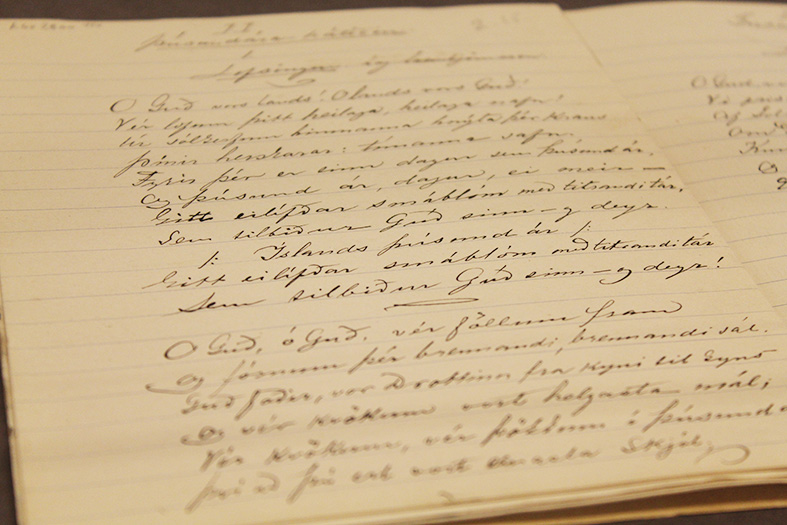 II
Þúsundára
Lofsöngur.
O Guð vors lands! O lands vors Guð!
Vér lofum þitt heilaga, heilaga nafn!
Úr sólkerfum himnanna hnýta þér krans
þínir herskarar: tímanna safn.
Fyrir þér er einn dagur sem þúsund ár,
Og þúsund ár, dagur, ei meir —
Eitt eilífðar smáblóm með titrandi tár,
Sem tilbiður Guð sinn – og deyr.
/: Íslands þúsund ár /:
Eitt eilífðar smáblóm með titrandi tár
Sem tilbiður Guð sinn – og deyr!
O Guð, ó Guð, vér föllum fram
Og fórnum þér brennandi, brennandi sál.
Guð faðir, vor Drottinn frá kyni til kyns
Og vér kvökum vort helgasta mál;
Vér kvökum, vér þökkum í þúsund
því að þú ert vort einasta skjól;
O Guð